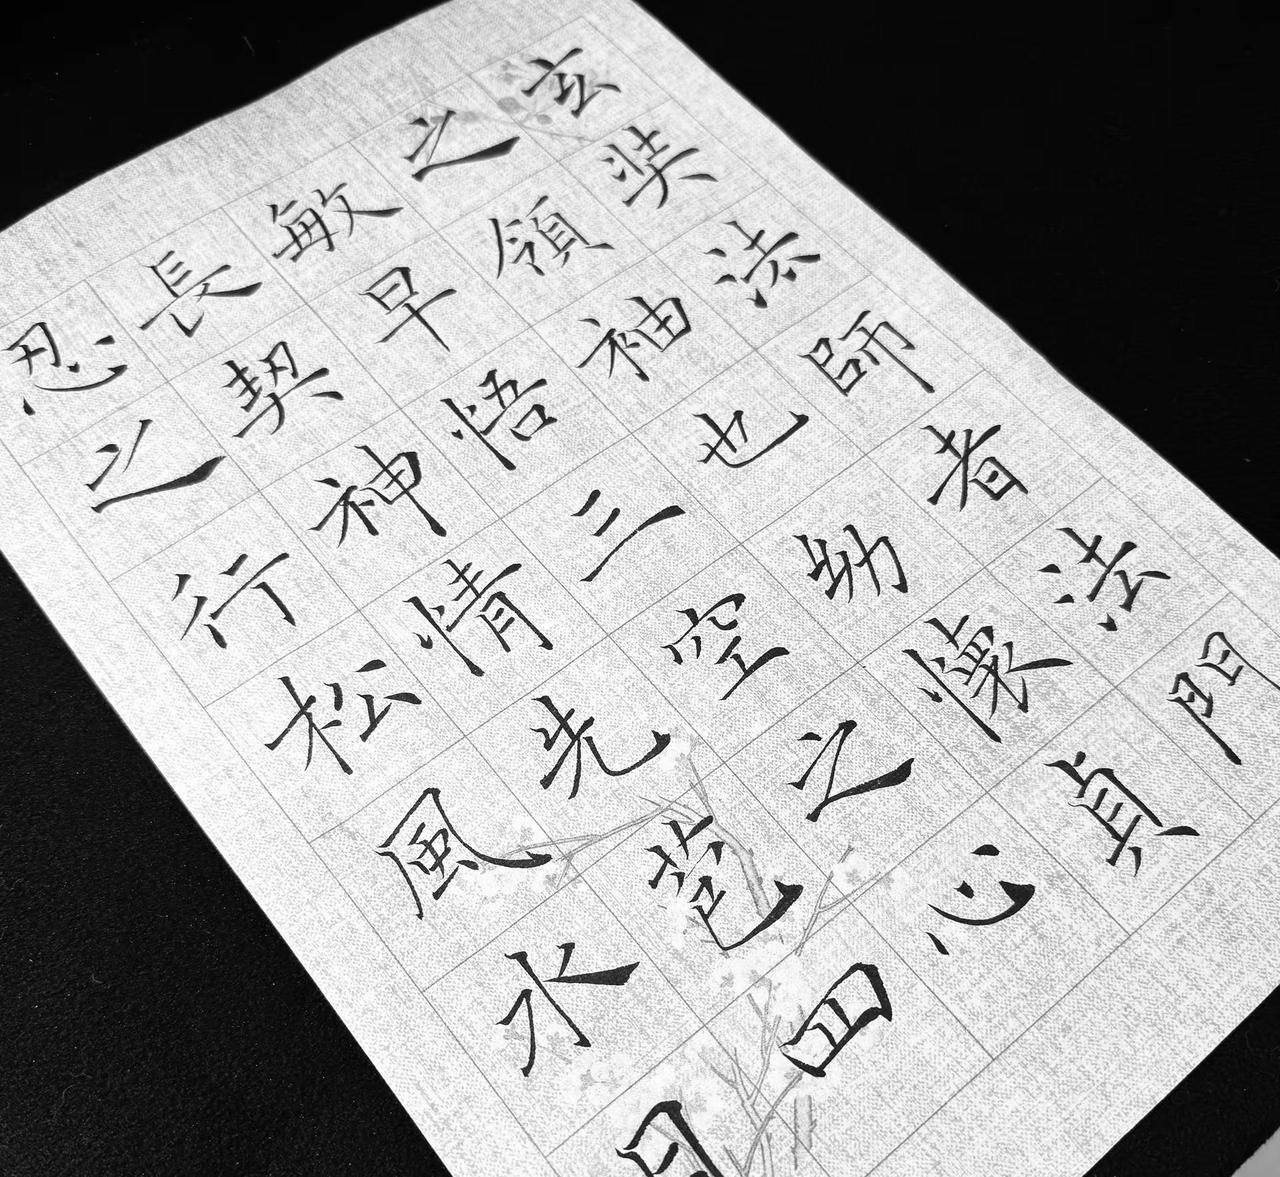 玄奘法師者法門
之領袖也幼懷貞
敏早悟三空之心
長契神情先苞四
忍之行松風水月